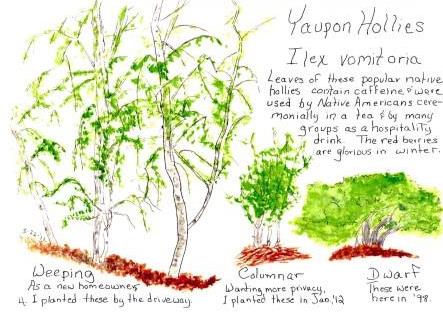 Yaupon Hollies
Ilex vomitoria
Leaves of these popular native
hollies contain caffeine & were
used by Native Americans cere-
monially in a tea & by many
groups as a hospitality
drink. The red berries
are glorious in winter.
Weeping
As a new homeowner,
I planted these by the driveway.
Columnar
Wanting more privacy,
I planted these in Jan, '12
Dwarf
These were
here in '98.